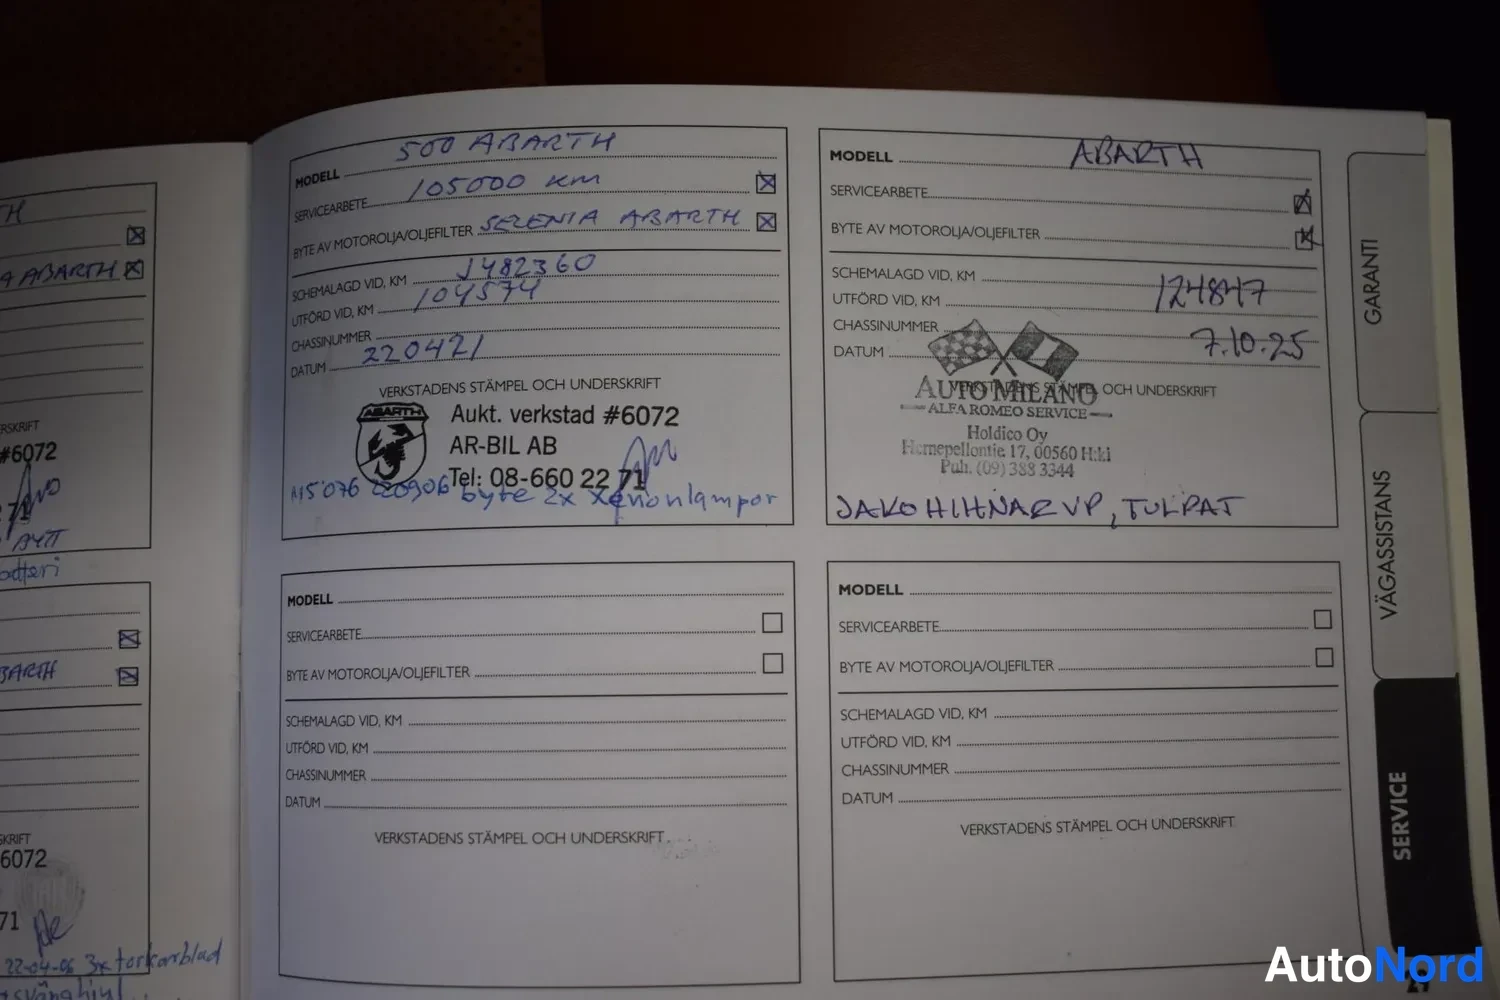 TH
A ABARTH
RSKRIFT
#6072
71
BYTT
batteri
BARTH
SKRIFT
6072
71
22-04-06 3x torkarblad
500 ABARTH
MODELL
105000 KM
SERVICEARBETE
BYTE AV MOTOROLJA/OLJEFILTER SELENIA ABARTH
J482360
SCHEMALAGD VID, KM
104574
UTFÖRD VID, KM
CHASSINUMMER
220421
DATUM
VERKSTADENS STÄMPEL OCH UNDERSKRIFT
ABARTH
Aukt. verkstad #6072
AR-BIL AB
Tel: 08-660 22 71
220906 byte 2x Xenonlampor
MODELL ABARTH
SERVICEARBETE
BYTE AV MOTOROLJA/OLJEFILTER
SCHEMALAGD VID, KM
UTFÖRD VID, KM 124847
CHASSINUMMER
DATUM 7.10.25
VERKSTADENS STÄMPEL OCH UNDERSKRIFT
AUTO MILANO
ALFA ROMEO SERVICE
Holdico Oy
Hernepellontie 17, 00560 H:ki
Puh. (09) 388 3344
JAKOHIHNAR VP, TULPAT
MODELL
SERVICEARBETE
BYTE AV MOTOROLJA/OLJEFILTER
SCHEMALAGD VID, KM
UTFÖRD VID, KM
CHASSINUMMER
DATUM
VERKSTADENS STÄMPEL OCH UNDERSKRIFT
MODELL
SERVICEARBETE
BYTE AV MOTOROLJA/OLJEFILTER
SCHEMALAGD VID, KM
UTFÖRD VID, KM
CHASSINUMMER
DATUM
VERKSTADENS STÄMPEL OCH UNDERSKRIFT
GARANTI
VÄGASSISTANS
SERVICE
AutoNord